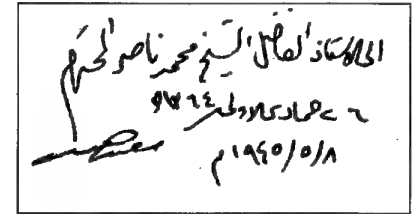 الى الأستاذ الفاضل الشيخ محمد ناصر المحترم
٢٦ جمادى الاولى ١٣٦٤هـ
١٩٤٥/٥/٨م